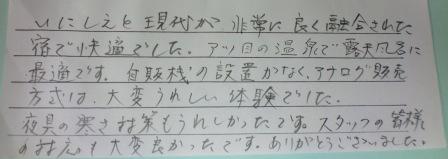 いにしえと現代が非常に良く融合された
宿で快適でした。アツ目の温泉で露天風呂に
最適です。自販機の設置がなく、アナログ販売
方式は、大変うれしい体験でした。
夜具の寒さ対策もうれしかったです。スタッフの皆様
の対応も大変良かったです。ありがとうございました。